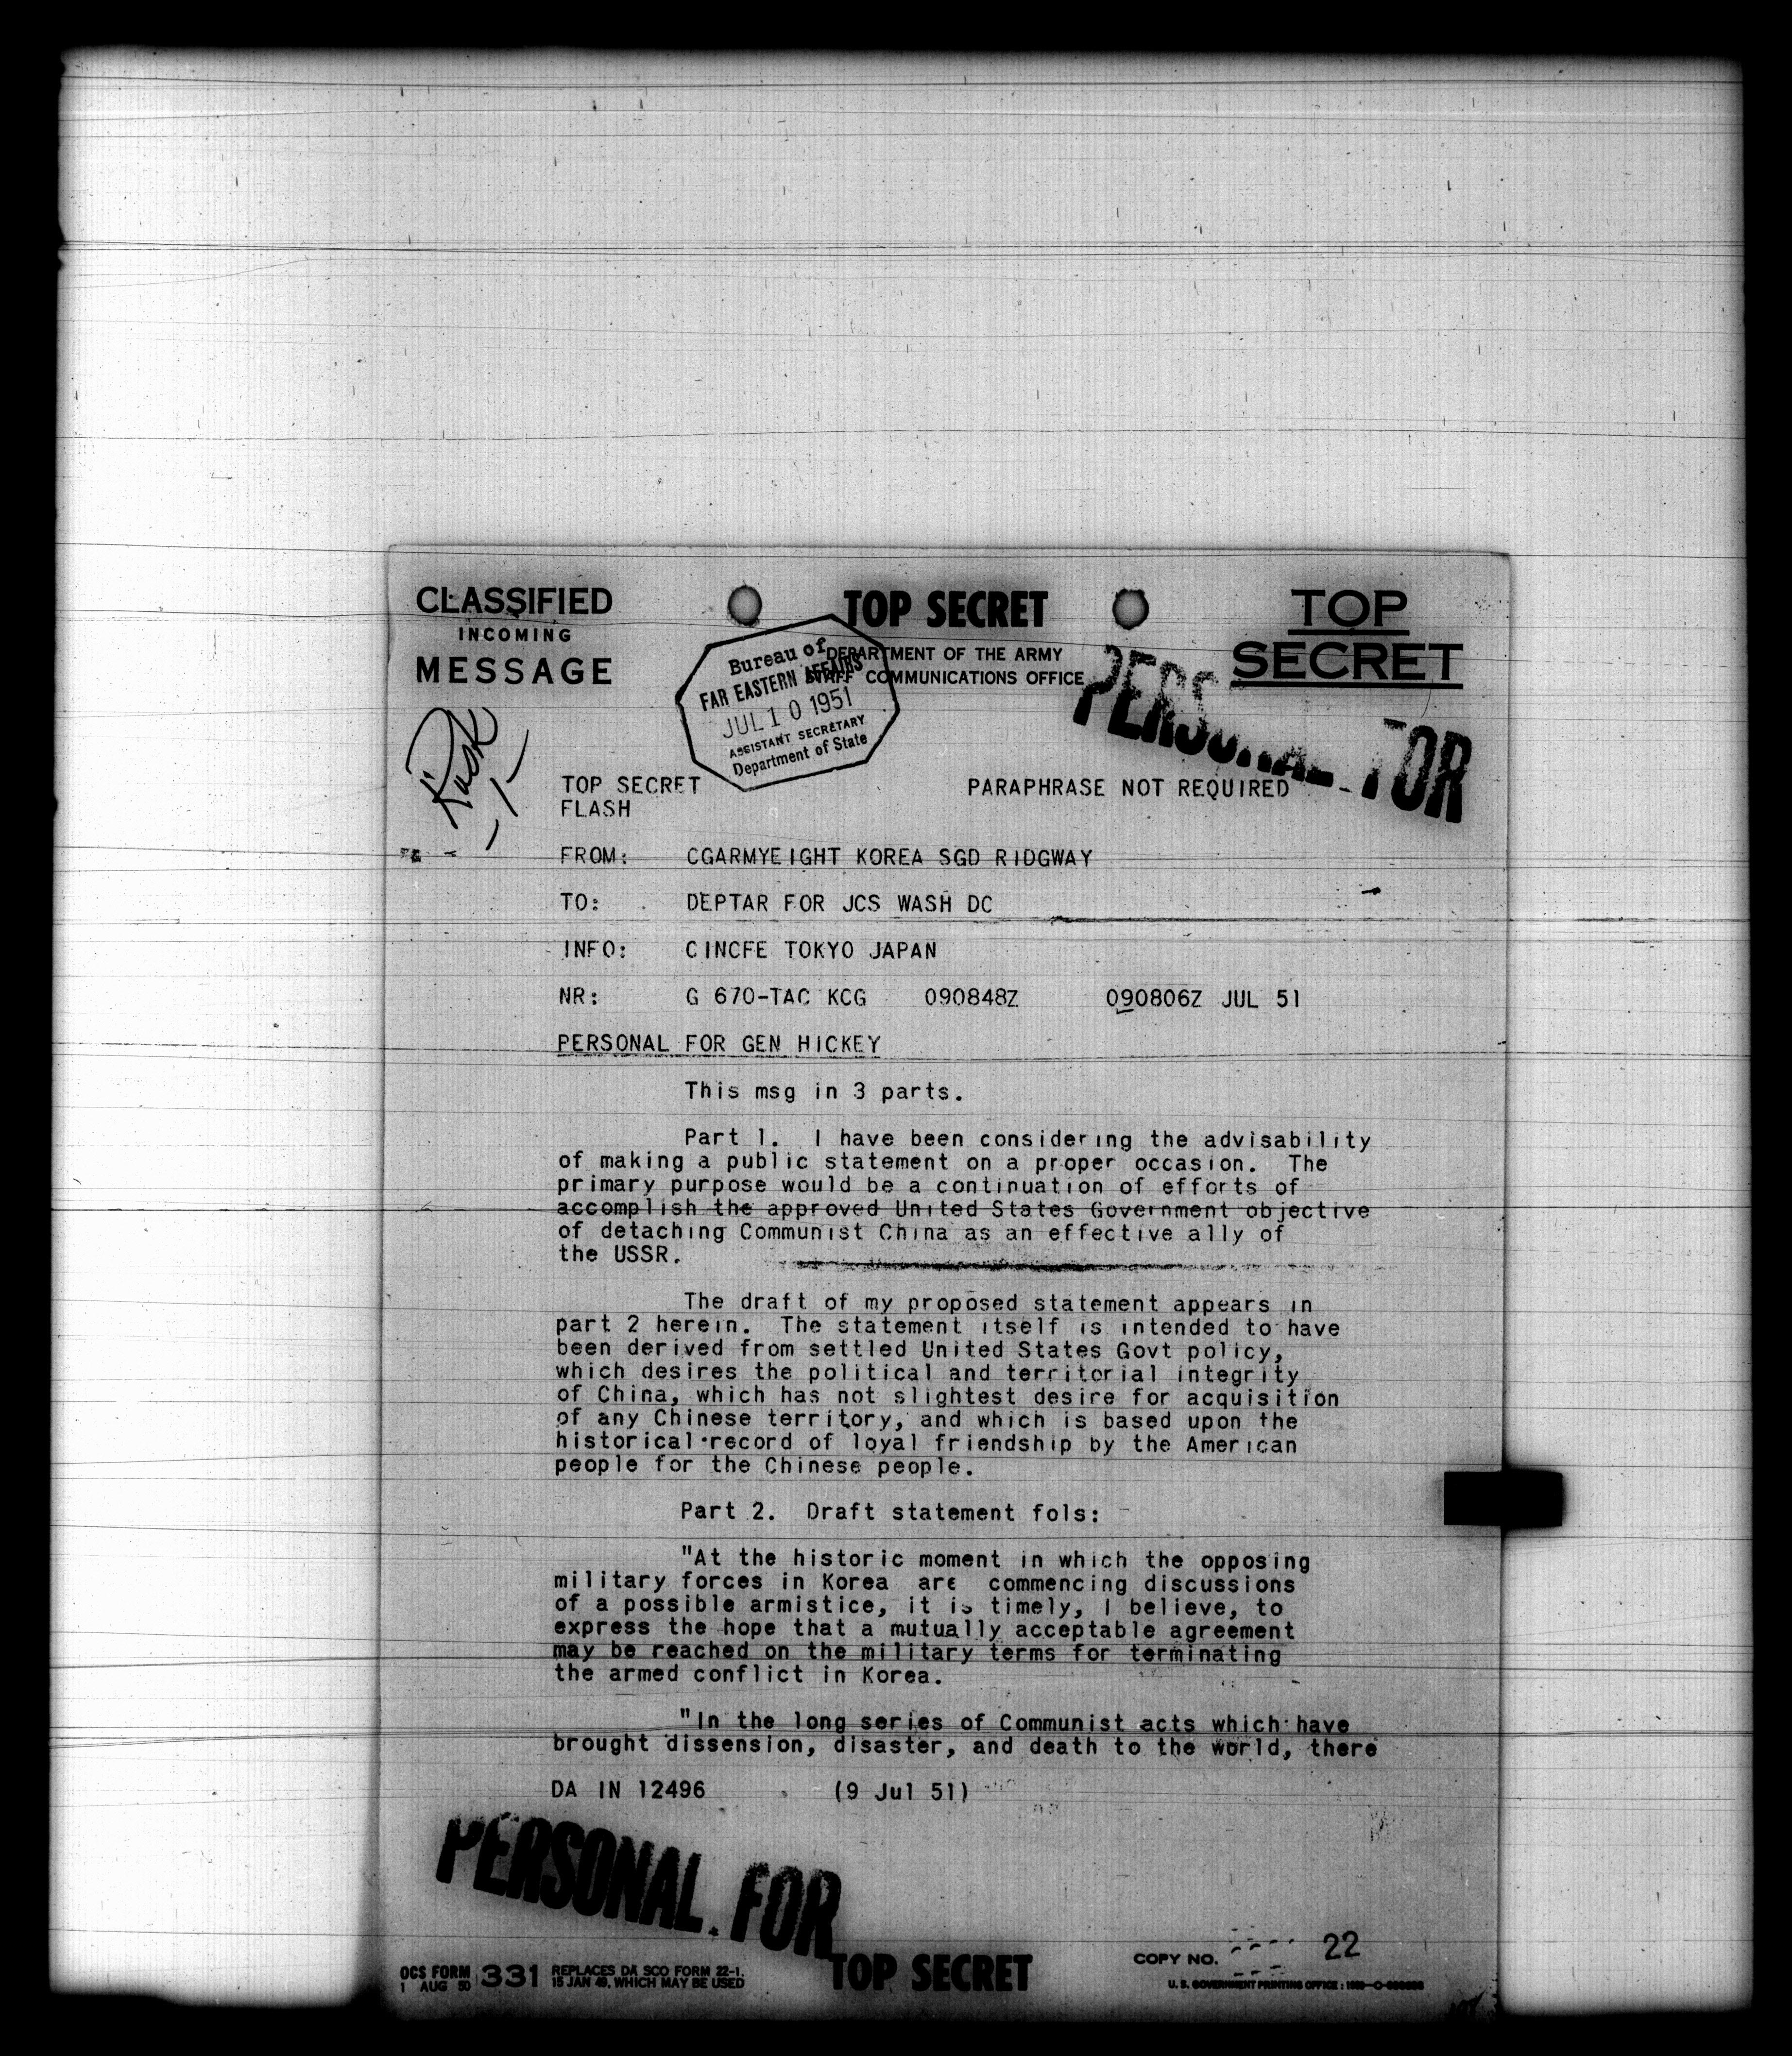 CLASSIFIED
INCOMING
MESSAGE
TOP SECRET
DEPARTMENT OF THE ARMY
STAFF COMMUNICATIONS OFFICE
TOP
SECRET
Bureau of
FAR EASTERN AFFAIRS
JUL 10 1951
ASSISTANT SECRETARY
Department of State
PERSONAL FOR
Rusk
TOP SECRET
PARAPHRASE NOT REQUIRED
FLASH
FROM: CGARMYEIGHT KOREA SGD RIDGWAY
TO: DEPTAR FOR JCS WASH DC
INFO: CINCFE TOKYO JAPAN
NR: G 670-TAC KCG 090848Z 090806Z JUL 51
PERSONAL FOR GEN HICKEY
This msg in 3 parts.
Part 1. I have been considering the advisability
of making a public statement on a proper occasion. The
primary purpose would be a continuation of efforts of
accomplish the approved United States Government objective
of detaching Communist China as an effective ally of
the USSR.
The draft of my proposed statement appears in
part 2 herein. The statement itself is intended to have
been derived from settled United States Govt policy,
which desires the political and territorial integrity
of China, which has not slightest desire for acquisition
of any Chinese territory, and which is based upon the
historical record of loyal friendship by the American
people for the Chinese people.
Part 2. Draft statement fols:
"At the historic moment in which the opposing
military forces in Korea are commencing discussions
of a possible armistice, it is timely, I believe, to
express the hope that a mutually acceptable agreement
may be reached on the military terms for terminating
the armed conflict in Korea.
"In the long series of Communist acts which have
brought dissension, disaster, and death to the world, there
DA IN 12496 (9 Jul 51)
PERSONAL FOR
OCS FORM 331
1 AUG 50
REPLACES DA SCO FORM 22-1,
15 JAN 49, WHICH MAY BE USED
TOP SECRET
COPY NO. 22
U. S. GOVERNMENT PRINTING OFFICE